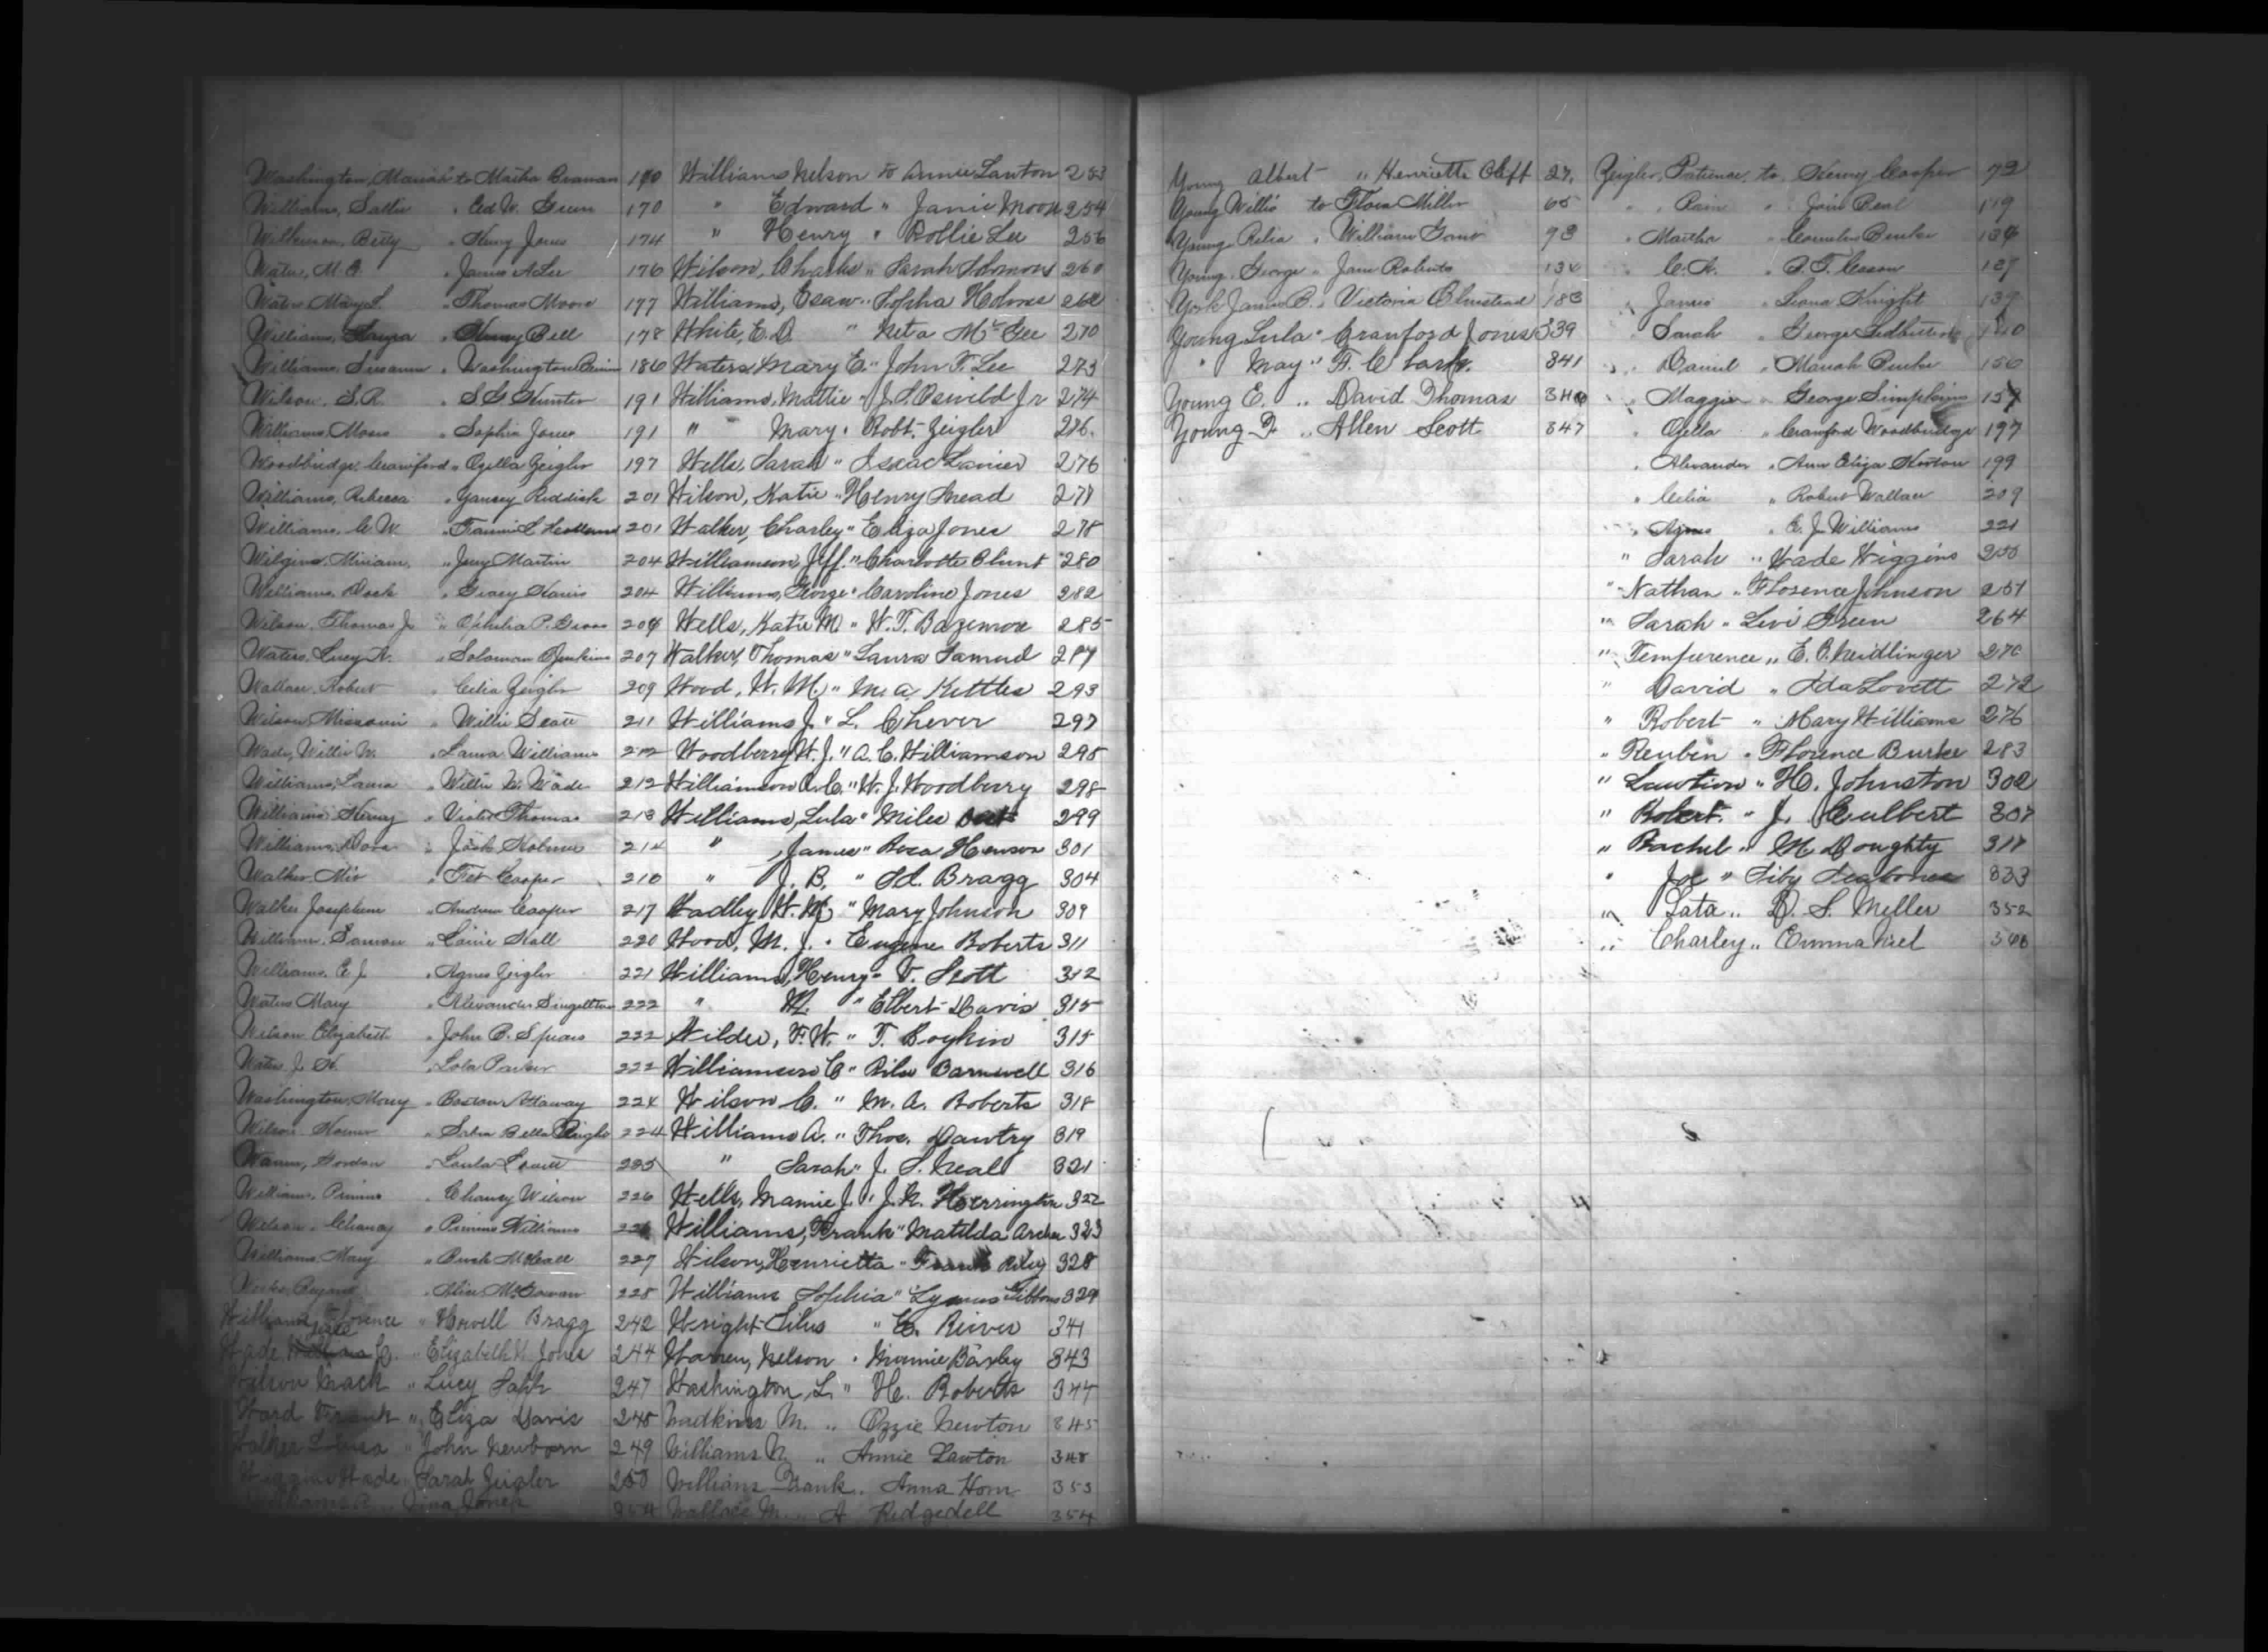 Washington, Mariah to Martha Braman 190
Williams, Sallie " Ed W. Green 170
Wilkinson, Betty " Henry Jones 174
Waters, M. C. " James A Lee 176
Waters Mary L. " Thomas Moore 177
Williams, Laura " Henry Bell 178
Williams, Susann " Washington 186
Wilson, S. R. " S G Hunter 191
Williams Moses " Sophia Jones 191
Woodbridge, Crawford " Ozella Zeigler 197
Williams, Rebecca " Yancey Reddick 201
Williams, C. W. " Fannie L 201
Wilgins, Miriam, " Jerry Martin 204
Williams, Dock " Gracy Harris 204
Wilson, Thomas J. " Ophelia P. Gross 204
Waters, Lucy A. " Solomon Jenkins 207
Wallace, Robert " Celia Zeigler 209
Wilson Missouri " Willie Scott 211
Wade, Willie W. " Laura Williams 212
Williams, Laura " Willie W. Wade 212
Williams Henry " Victor Thomas 213
Williams, Dora " Jack Holmes 214
Walker, " Cooper 216
Walker Josephine " Andrew Cooper 217
Williams, " Hall 220
Williams, E. J. " Agnes Zeigler 221
Waters Mary " Alexander Singellton 222
Wilson Elizabeth " John B. Spears 222
Waters J. H. " Lola Parker 222
Washington, " Attaway 224
Wilson " Bella 224
Warren, Gordon " Lovett 225
Williams, Primus " Chancy Wilson 226
Wilson, Chancy " Primus Williams 226
Williams Mary " 227
" Alice McGowan 228
Williams Florence " Howell Bragg 242
Wade C. " Elizabeth H. Jones 244
Wilson Mack " Lucy Sapp 247
Ward Frank " Eliza Davis 248
Walker " John Newborn 249
Wiggins Wade " Sarah Zeigler 250
Jones 254
Williams Nelson to Annie Lawton 253
" Edward " Janie Moon 254
" Henry " Dollie Lee 256
Wilson, Charles " Sarah Solomons 260
Williams, Esaw " Sopha Holmes 262
White, E. D. " Neta McGee 270
Waters Mary E. " John F. Lee 273
Williams, Mattie " J. S. Oswild Jr 274
" Mary " Robt. Zeigler 276.
Wells, Sarah " Isaac Lanier 276
Wilson, Katie " Henry Mead 277
Walker, Charley " Eliza Jones 278
Williamson, Jeff. " Charlotte Blunt 280
Williams, George " Caroline Jones 282
Wells, Katie M. " W. T. Bazemore 285
Walker, Thomas " Laura Samud 287
Wood, W. M. " M. A Kettles 293
Williams J. " L. Chever 297
Woodberry W. J. " A. C. Williamson 298
Williamson A. C. " W. J. Woodberry 298
Williams, Lula " Miles 299
" James " Rosa Henson 301
" J. B. " Bragg 304
Wadley W. M. " Mary Johnson 309
Wood, M. J. " Eugene Roberts 311
Williams, Henry " V. Scott 312
" M. " Elbert Davis 315
Wilder, F. W. " T. Boykin 315
Williamson C " Riler Barnwell 316
Wilson C. " M. A. Roberts 318
Williams A. " Thos. Dawtry 319
" Sarah " J. S. Neal 321
Wells, Mamie J. " J. N. Herrington 322
Williams, Frank " Matilda Archer 323
Wilson, Henrietta " Frank Riley 328
Williams Sophia " Lymus Gibbons 329
Wright Silus " C. River 341
Warren, Nelson " Minnie Baxley 343
Washington, L. " H. Roberts 344
Wadkins M. " Ozzie Newton 345
Williams N. " Annie Lawton 348
Williams Frank " Anna Horn 353
Wallace M. " A Ridgedell 354
Young Albert " Henrietta Cleft 27.
Young Willis to Flora Miller 65
Young Relia " William 93
Young, George " Jane Roberts 136
York James B. " Victoria Olmstead 183
Young Lula " Crawford Jones 339
" May " F. Clark. 341
Young E. " David Thomas 346
Young F " Allen Scott 347
Zeigler, Patience, to, Henry Cooper 72
" " 119
" Martha " Cornelius 124
" C. A. " S. T. Cason 127
" James " Leana Knight 139
" Sarah " George 150
" Daniel " Mariah 156
" Maggie " George Simpkins 157
" Ozella " Crawford Woodbridge 197
" Alexander " Ann Eliza 199
" Celia " Robert Wallace 209
" Agnes " E. J. Williams 221
" Sarah " Wade Wiggins 250
" Nathan " Florence Johnson 251
" Sarah " Levi Green 264
" Tempurence " E. B. Neidlinger 270
" David " Ida Lovett 272
" Robert " Mary Williams 276
" Reuben " Florence Burke 283
" Lawtion " H. Johnston 302
" Robert. " J. Culbert 307
" Rachel " M. Doughty 317
" Joe " Siby 333
" Lata " D. S. Meller 352
" Charley " Emma Niel 366